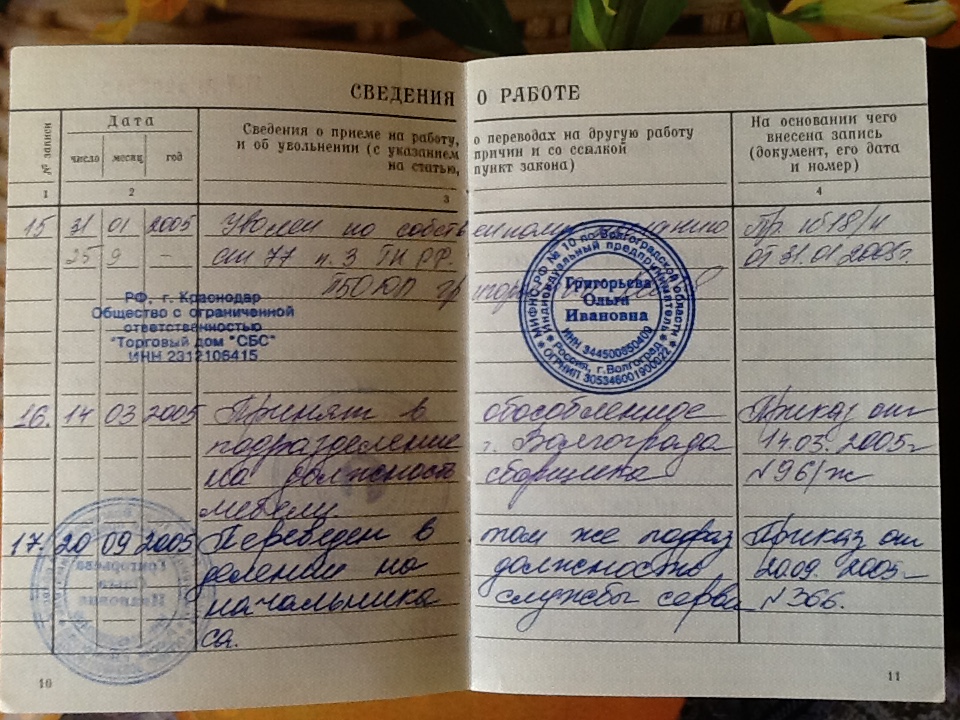 СВЕДЕНИЯ О РАБОТЕ
№ записи
Дата
число месяц год
Сведения о приеме на работу, о переводах на другую работу
и об увольнении (с указанием причин и со ссылкой
на статью, пункт закона)
На основании чего
внесена запись
(документ, его дата
и номер)
1 2 3 4
15 31 01 2005 Уволен по собственному желанию Пр. №18/к
25 9 — ст 77 п. 3 ТК РФ. от 31.01.2005г.
ПБОЮЛ
РФ, г. Краснодар
Общество с ограниченной
ответственностью
"Торговый дом "СБС"
ИНН 2312106415
МИФНС РФ № 10 по Волгоградской области
Индивидуальный предприниматель
Григорьева
Ольга
Ивановна
ИНН 344500850409
Россия, г. Волгоград
ОГРНИП 305346001900022
16. 14 03 2005 Принят в обособленное Приказ от
подразделение г. Волгограда 14.03. 2005г
на должность сборщика №96/ж
мебели
17. 20 09 2005 Переведен в том же подраз Приказ от
делении на должность 20.09. 2005г
начальника службы серви №366.
са.
10
11